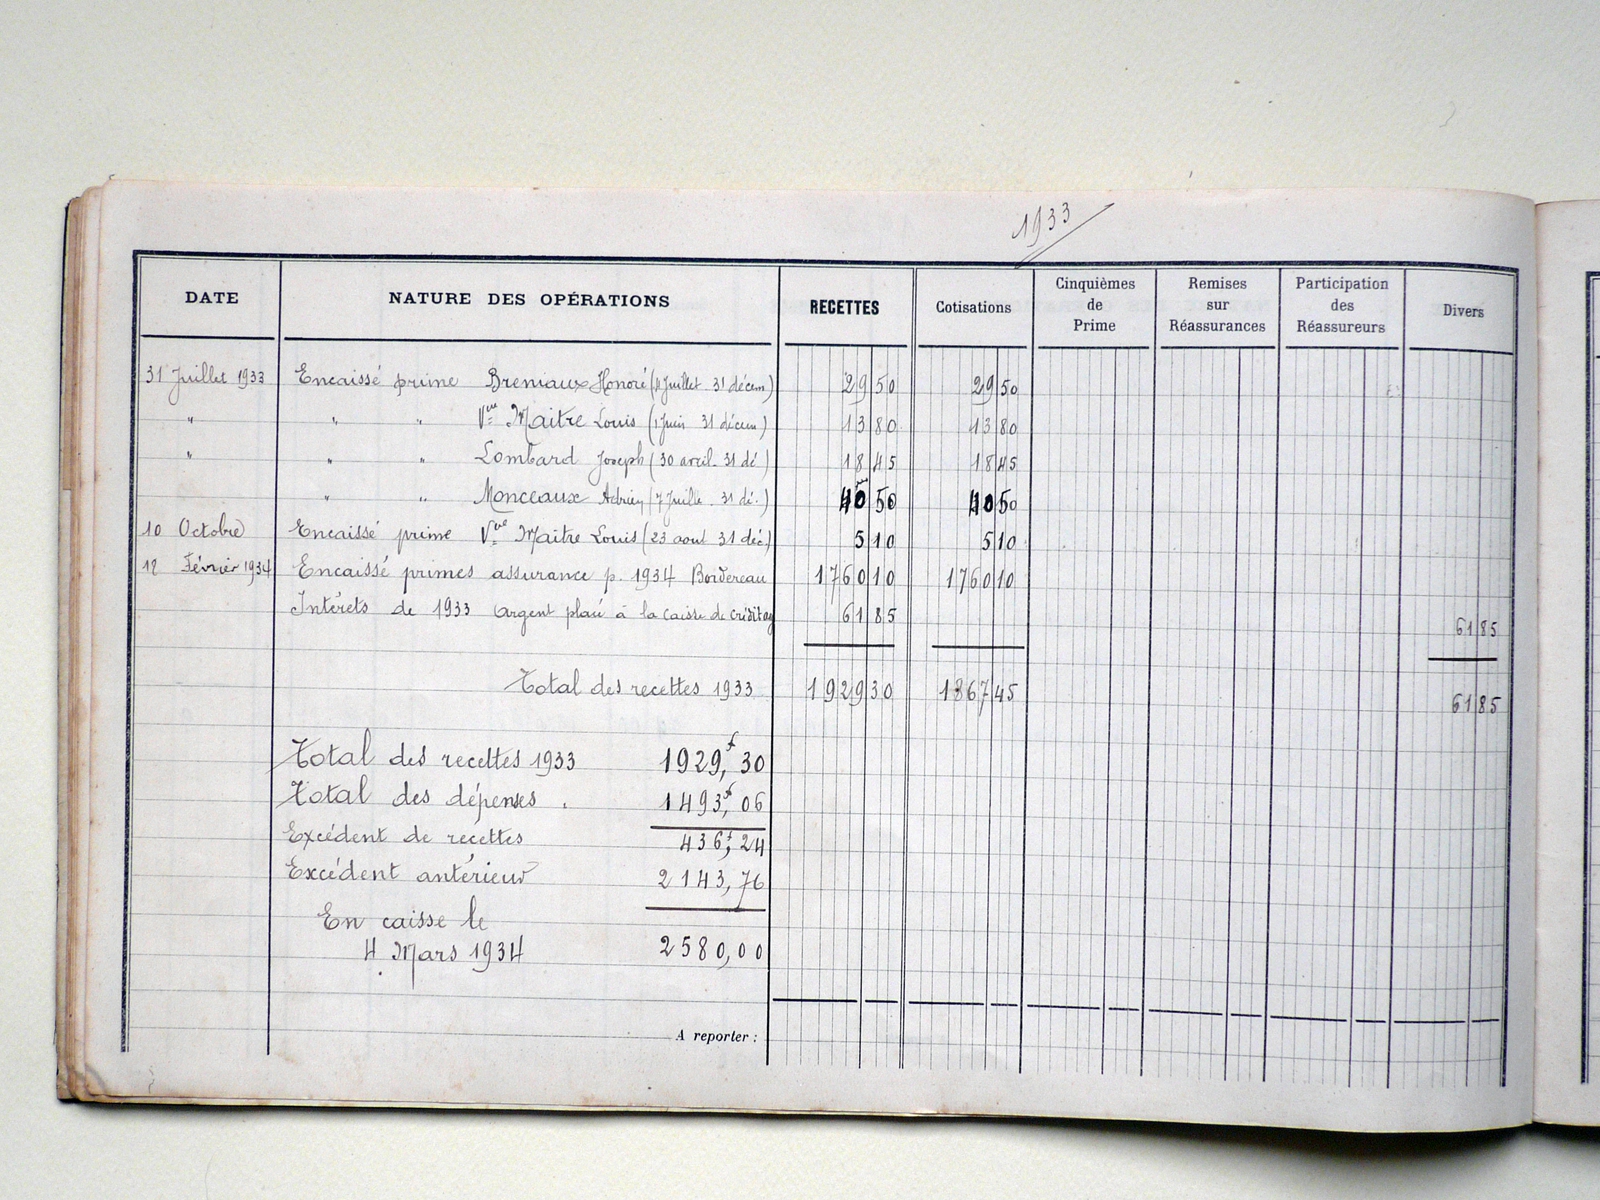 1933
DATE NATURE DES OPÉRATIONS RECETTES Cotisations Cinquièmes de Prime Remises sur Réassurances Participation des Réassureurs Divers
31 Juillet 1933 Encaissé prime Breniaux Honoré (4 Juillet 31 décem) 29 50 29 50
" " " Vve Maitre Louis (1 Juin 31 décem) 13 80 13 80
" " " Lombard Joseph (30 avril 31 dé) 18 45 18 45
" " Monceaux Adrien (7 Juille. 31 dé.) 40 50 40 50
10 Octobre Encaissé prime Vve Maitre Louis (23 aout 31 déc) 5 10 5 10
12 Février 1934 Encaissé primes assurance p. 1934 Bordereau 1760 10 1760 10
Intérets de 1933 argent placé à la caisse de crédit ag 61 85 61 85
Total des recettes 1933 1929 30 1867 45 61 85
Total des recettes 1933 1929f,30
Total des dépenses . 1493f,06
Excédent de recettes 436f,24
Excédent antérieur 2143,76
En caisse le
4 Mars 1934 2580,00
A reporter :